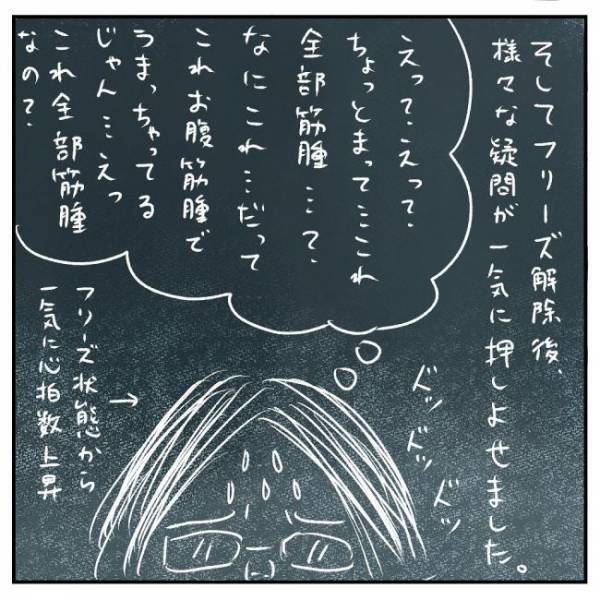 そしてフリーズ解除後、
様々な疑問が一気に押しよせました。
えって、えって、
ちょっとまって…これ
全部筋腫…？、
なにこれ…だって
これお腹筋腫で
うまっちゃってる
じゃん…えっ
これ全部筋腫
なの？、
ドッドッドッ
フリーズ状態から
一気に心拍数上昇